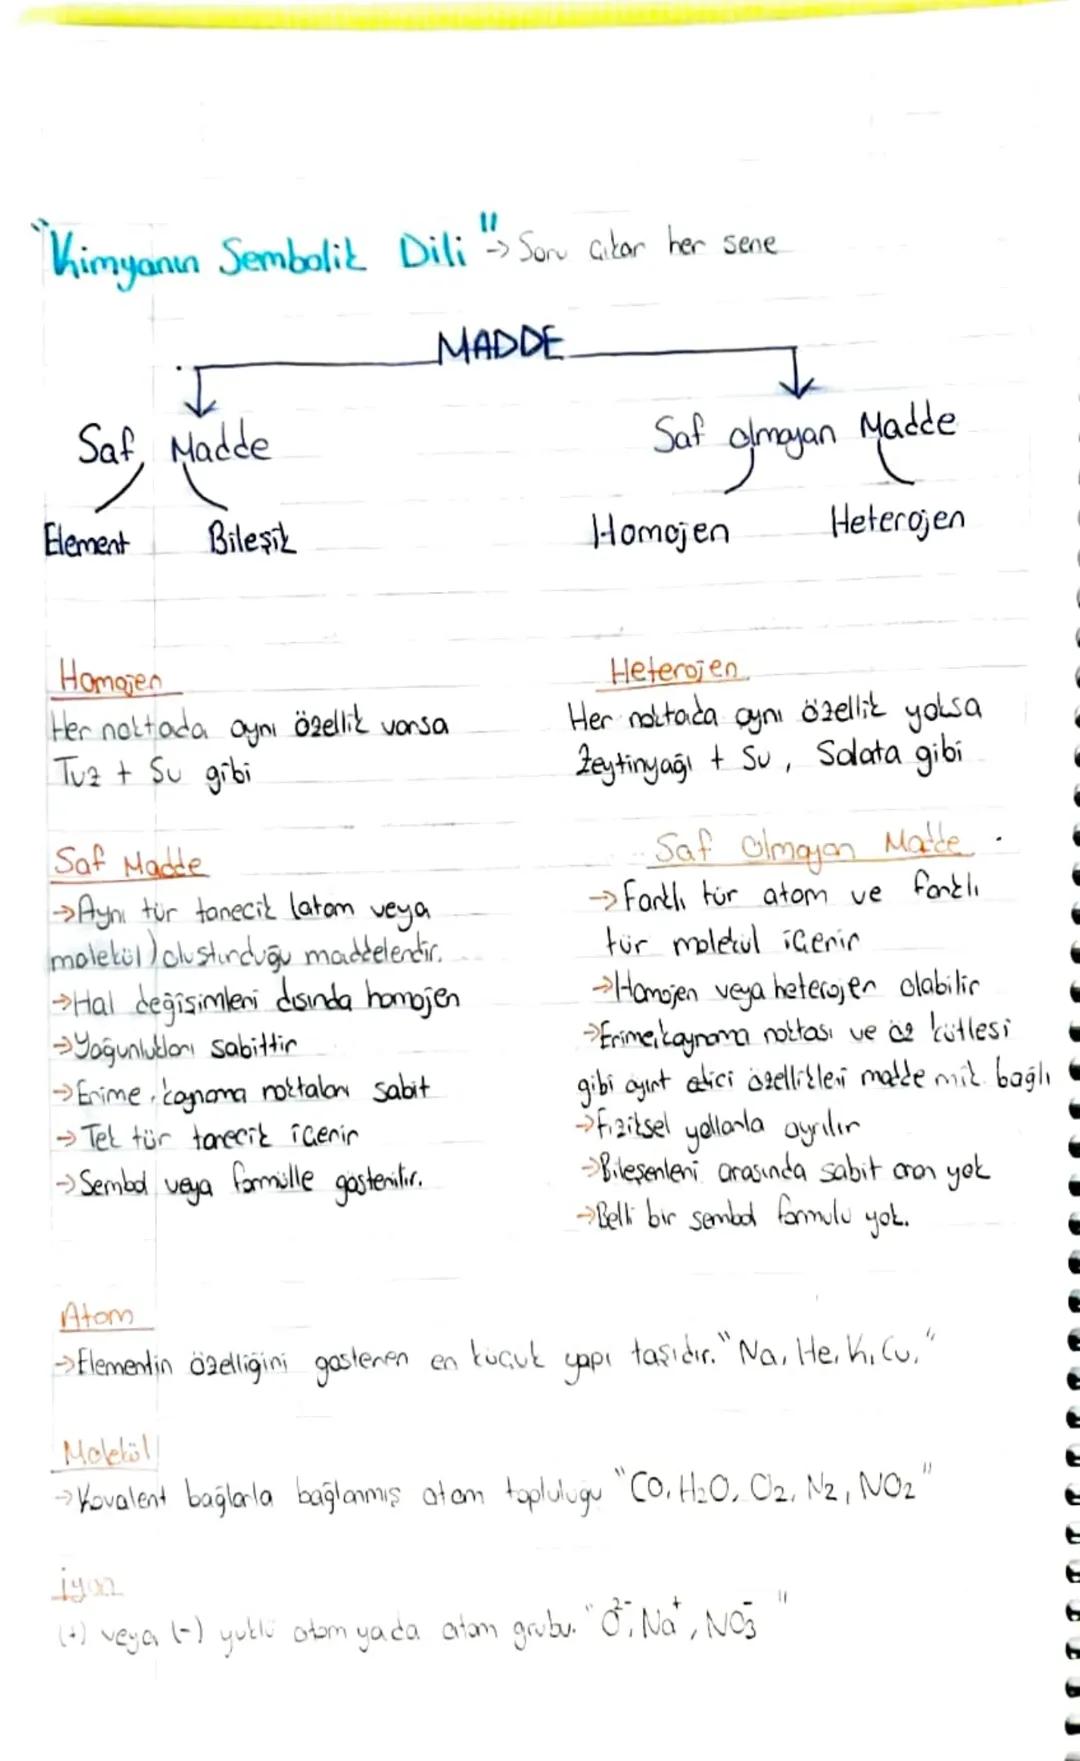 "Kimyanın Sembolik Dili" → Soru çıkar her sene
MADDE
Saf Madde
Saf olmayan Madde
Element Bileşik
Homojen Heterojen
Homojen
Her noktada aynı özellik varsa
Tuz + Su gibi
Heterojen
Her noktada aynı özellik yoksa
Zeytinyağı + Su, Salata gibi
Saf Madde
→Aynı tür tanecik (atom veya
molekül) oluşturduğu maddelerdir.
→Hal değişimleri dışında homojen
→Yoğunlukları sabittir
→Erime, kaynama noktaları sabit
→Tek tür tanecik içerir
→Sembol veya formülle gösterilir.
Saf Olmayan Madde
→Farklı tür atom ve farklı
tür molekül içerir
→Homojen veya heterojen olabilir
→Erime, kaynama noktası ve öz kütlesi
gibi ayırt edici özellikleri madde mik. bağlı
→Fiziksel yollarla ayrılır
→Bileşenleri arasında sabit oran yok
→Belli bir sembol formulu yok.
Atom
→Elementin özelliğini gösteren en küçük yapı taşıdır. "Na, He, K, Cu,"
Molekül
→Kovalent bağlarla bağlanmış atom topluluğu "CO, H₂O, O₂, N₂, NO₂"
İyon
(+) veya (-) yüklü atom yada atom grubu. "O²⁻, Na⁺, NO₃⁻"